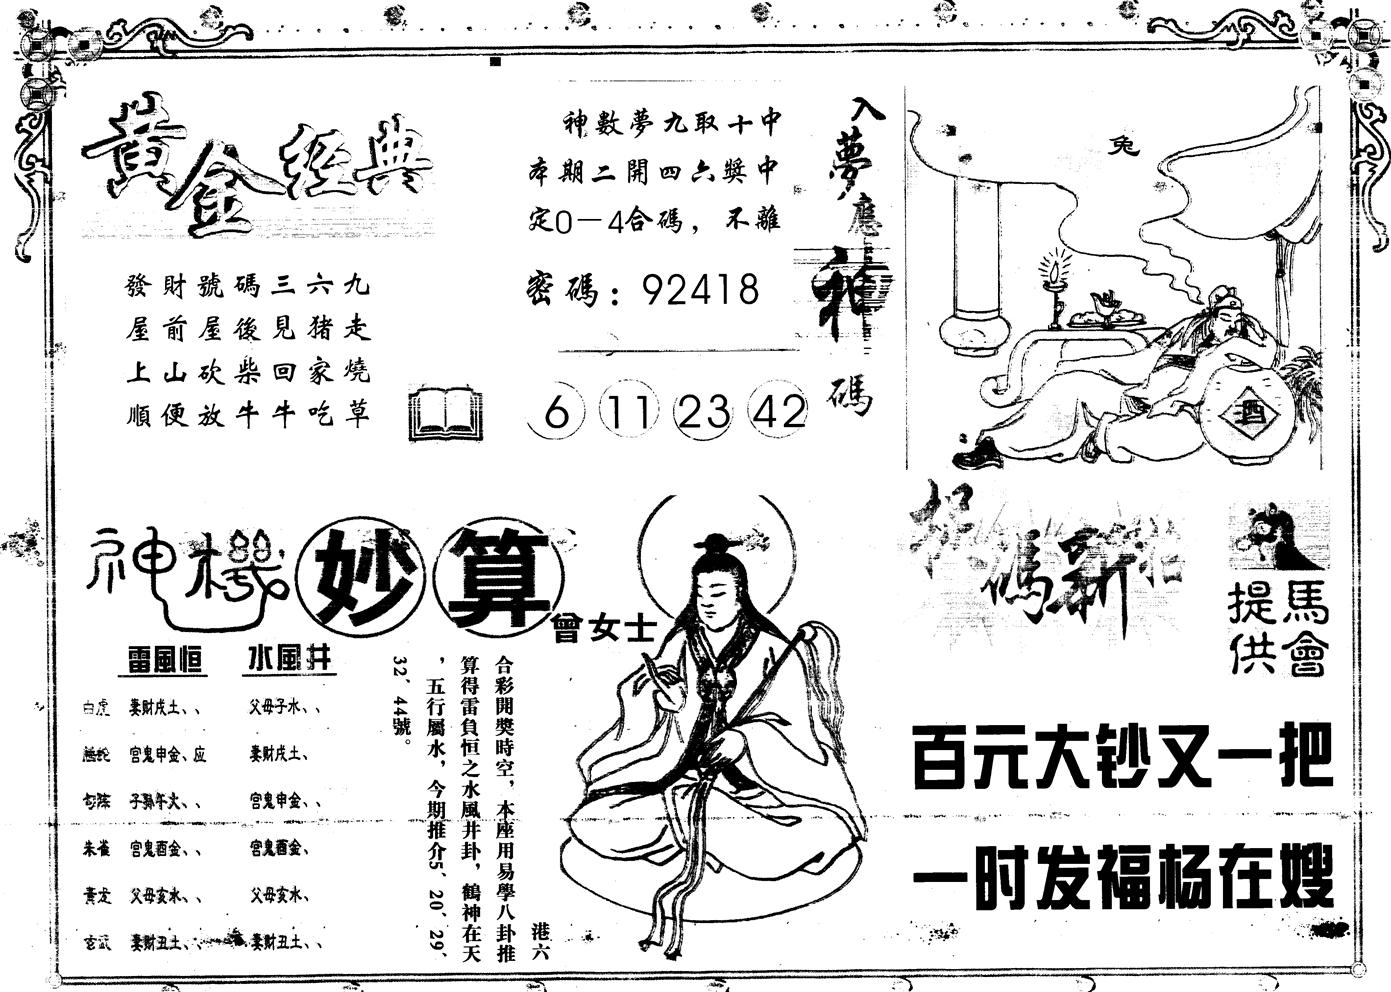 黃金經典
發財號碼三六九
屋前屋後見猪走
上山砍柴回家燒
順便放牛牛吃草
神數夢九取十中
本期二開四六獎中
定0－4合碼，不離
密碼：92418
6 11 23 42
入夢應神碼
兔
酒
神機妙算
曾女士
雷風恒 水風井
白虎 妻財戌土、、 父母子水、、
宫鬼申金、应 妻財戌土、
勾陈 子孫午火、、 宫鬼申金、、
朱雀 宫鬼酉金、、 宫鬼酉金、
黃龙 父母亥水、、 父母亥水、
玄武 妻財丑土、、 妻財丑土、、
港六
合彩開獎時空，本座用易學八卦推
算得雷負恒之水風井卦，鶴神在天
，五行屬水，今期推介5、20、29、
32、44號。
碼新招
馬會
提供
百元大钞又一把
一时发福杨在嫂